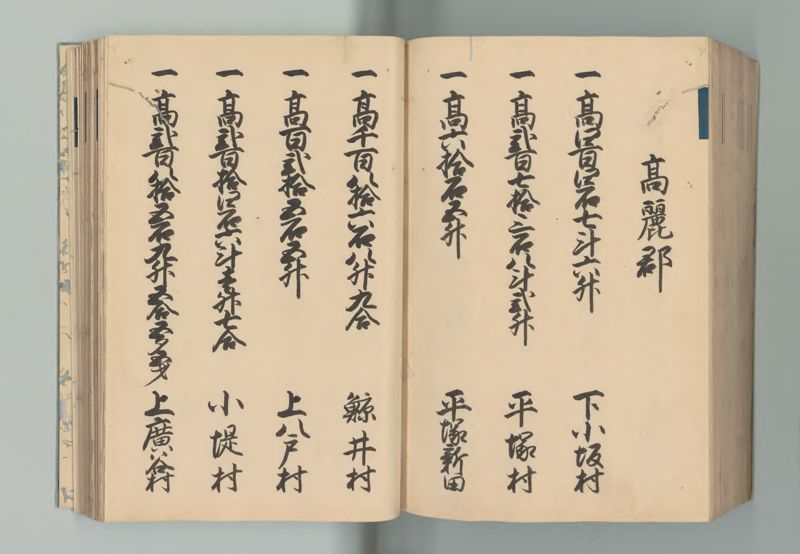 高麗郡
一高四百四石七斗六升 下小坂村
一高弐百七拾三石八斗弐升 平塚村
一高六拾石五升 平塚新田
一高千百八拾六石八升九合 鯨井村
一高百弐拾五石五升 上八戸村
一高弐百拾四石六斗壱升七合 小堤村
一高弐百八拾五石九升五合五夕 上廣谷村